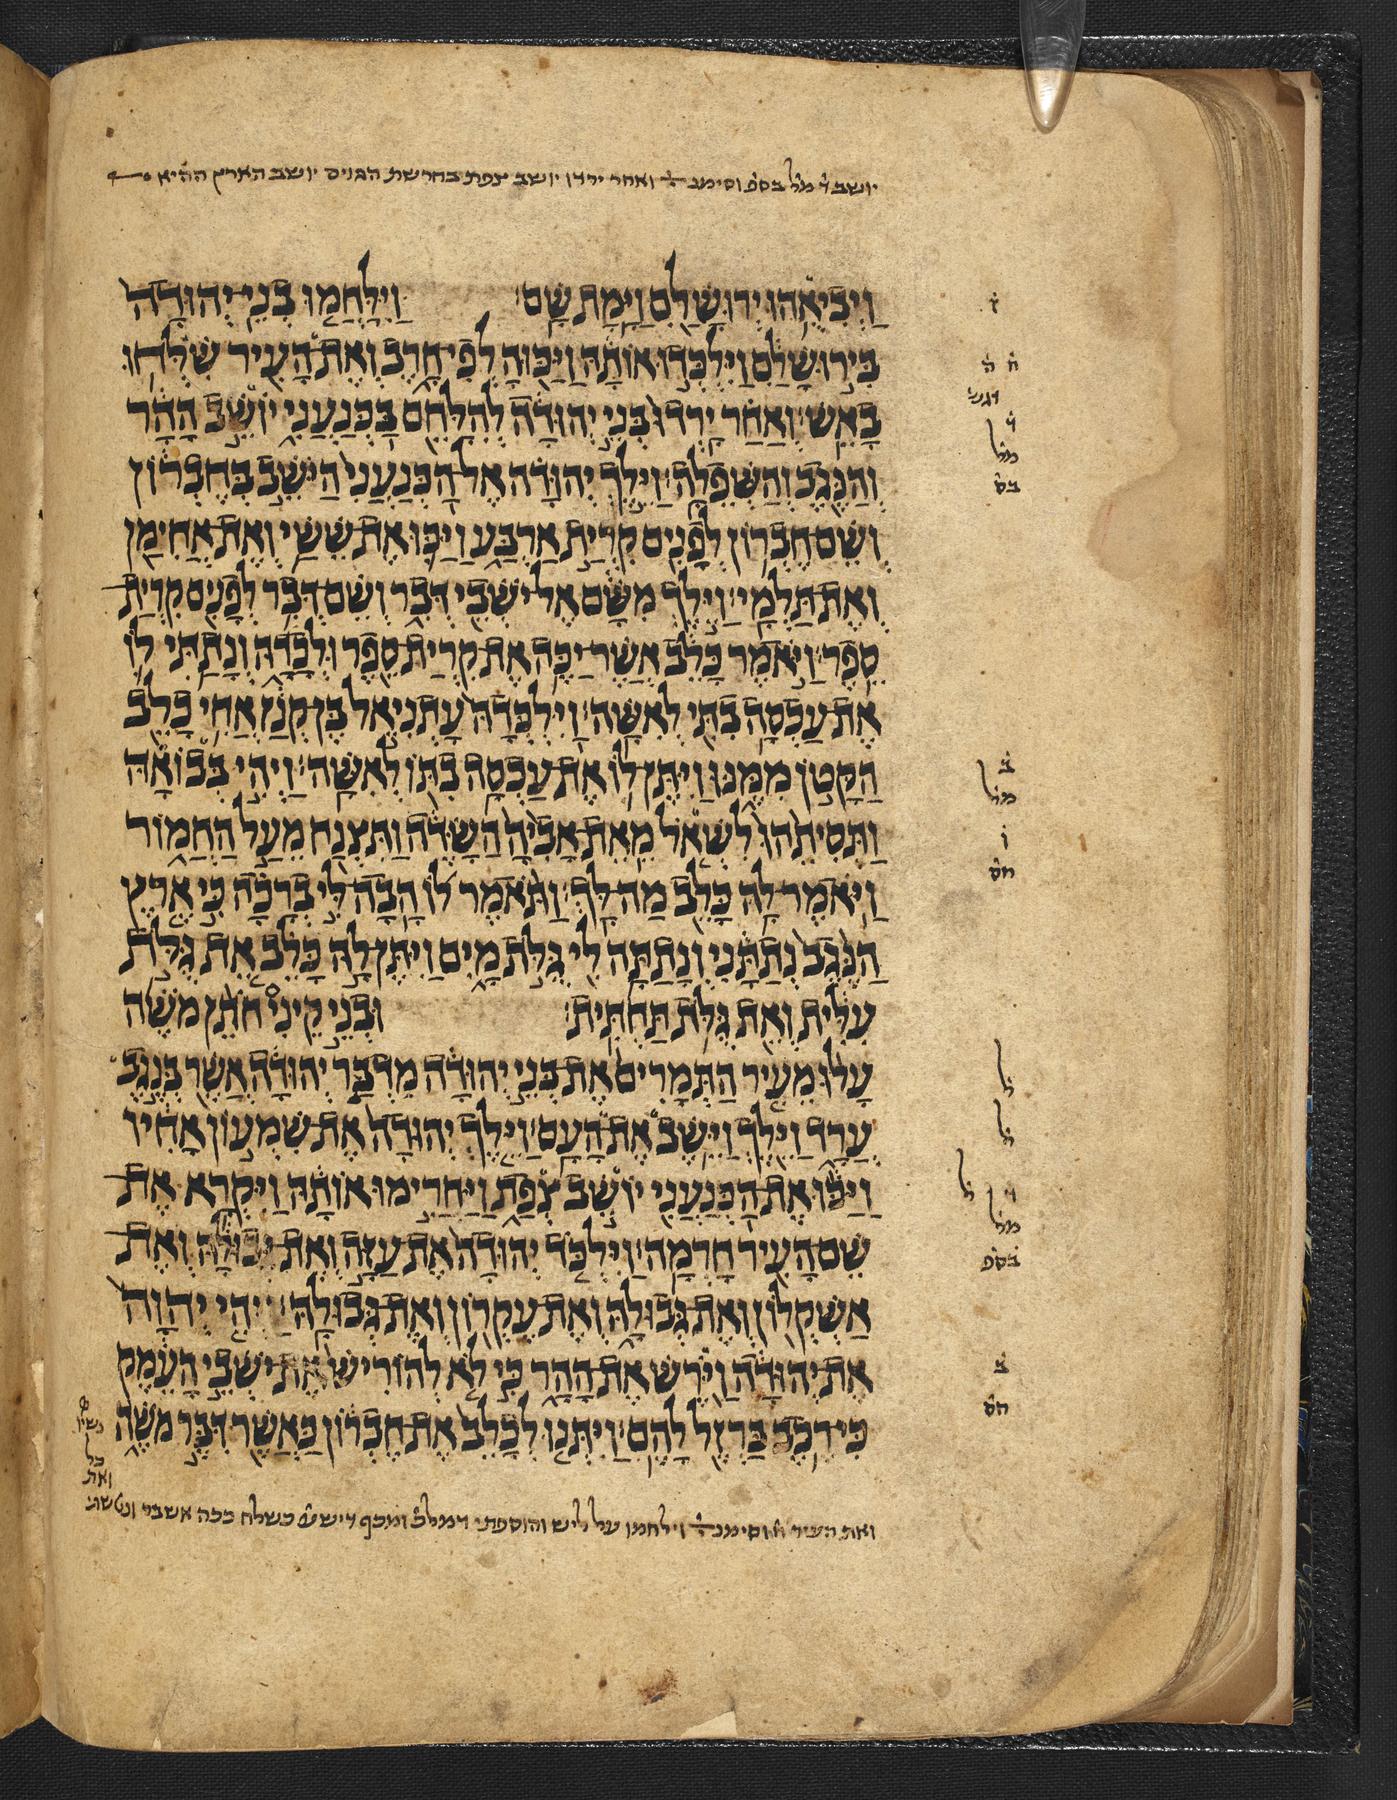 יושב ד מל בספ וסימנ ואחר ירדו יושב צפת בחרשת הגוים יושב הארץ ההיא
ויביאהו ירושלם וימת שם׃ וילחמו בני יהודה
בירושלם וילכדו אותה ויכוה לפי חרב ואת העיר שלחו
באש׃ ואחר ירדו בני יהודה להלחם בכנעני יושב ההר
והנגב והשפלה׃ וילך יהודה אל הכנעני הישב בחברון
ושם חברון לפנים קרית ארבע ויכו את ששי ואת אחימן
ואת תלמי׃ וילך משם אל ישבי דבר ושם דבר לפנים קרית
ספר׃ ויאמר כלב אשר יכה את קרית ספר ולכדה ונתתי לו
את עכסה בתי לאשה׃ וילכדה עתניאל בן קנז אחי כלב
הקטן ממנו ויתן לו את עכסה בתו לאשה׃ ויהי בבואה
ותסיתהו לשאל מאת אביה השדה ותצנח מעל החמור
ויאמר לה כלב מה לך׃ ותאמר לו הבה לי ברכה כי ארץ
הנגב נתתני ונתתה לי גלת מים ויתן לה כלב את גלת
עלית ואת גלת תחתית׃ ובני קיני חתן משה
עלו מעיר התמרים את בני יהודה מדבר יהודה אשר בנגב
ערד וילך וישב את העם׃ וילך יהודה את שמעון אחיו
ויכו את הכנעני יושב צפת ויחרימו אותה ויקרא את
שם העיר חרמה׃ וילכד יהודה את עזה ואת גבולה ואת
אשקלון ואת גבולה ואת עקרון ואת גבולה׃ ויהי יהוה
את יהודה וירש את ההר כי לא להוריש את ישבי העמק
כי רכב ברזל להם׃ ויתנו לכלב את חברון כאשר דבר משה
ואת העיר וסימנ וילחמו על ליש והוספתי ככה אשבר
ז
ה
דגש
ד
מל
בס
ב
מל
ו
חס
ל
ל
ל
ד
מל
בספ
ב
חס